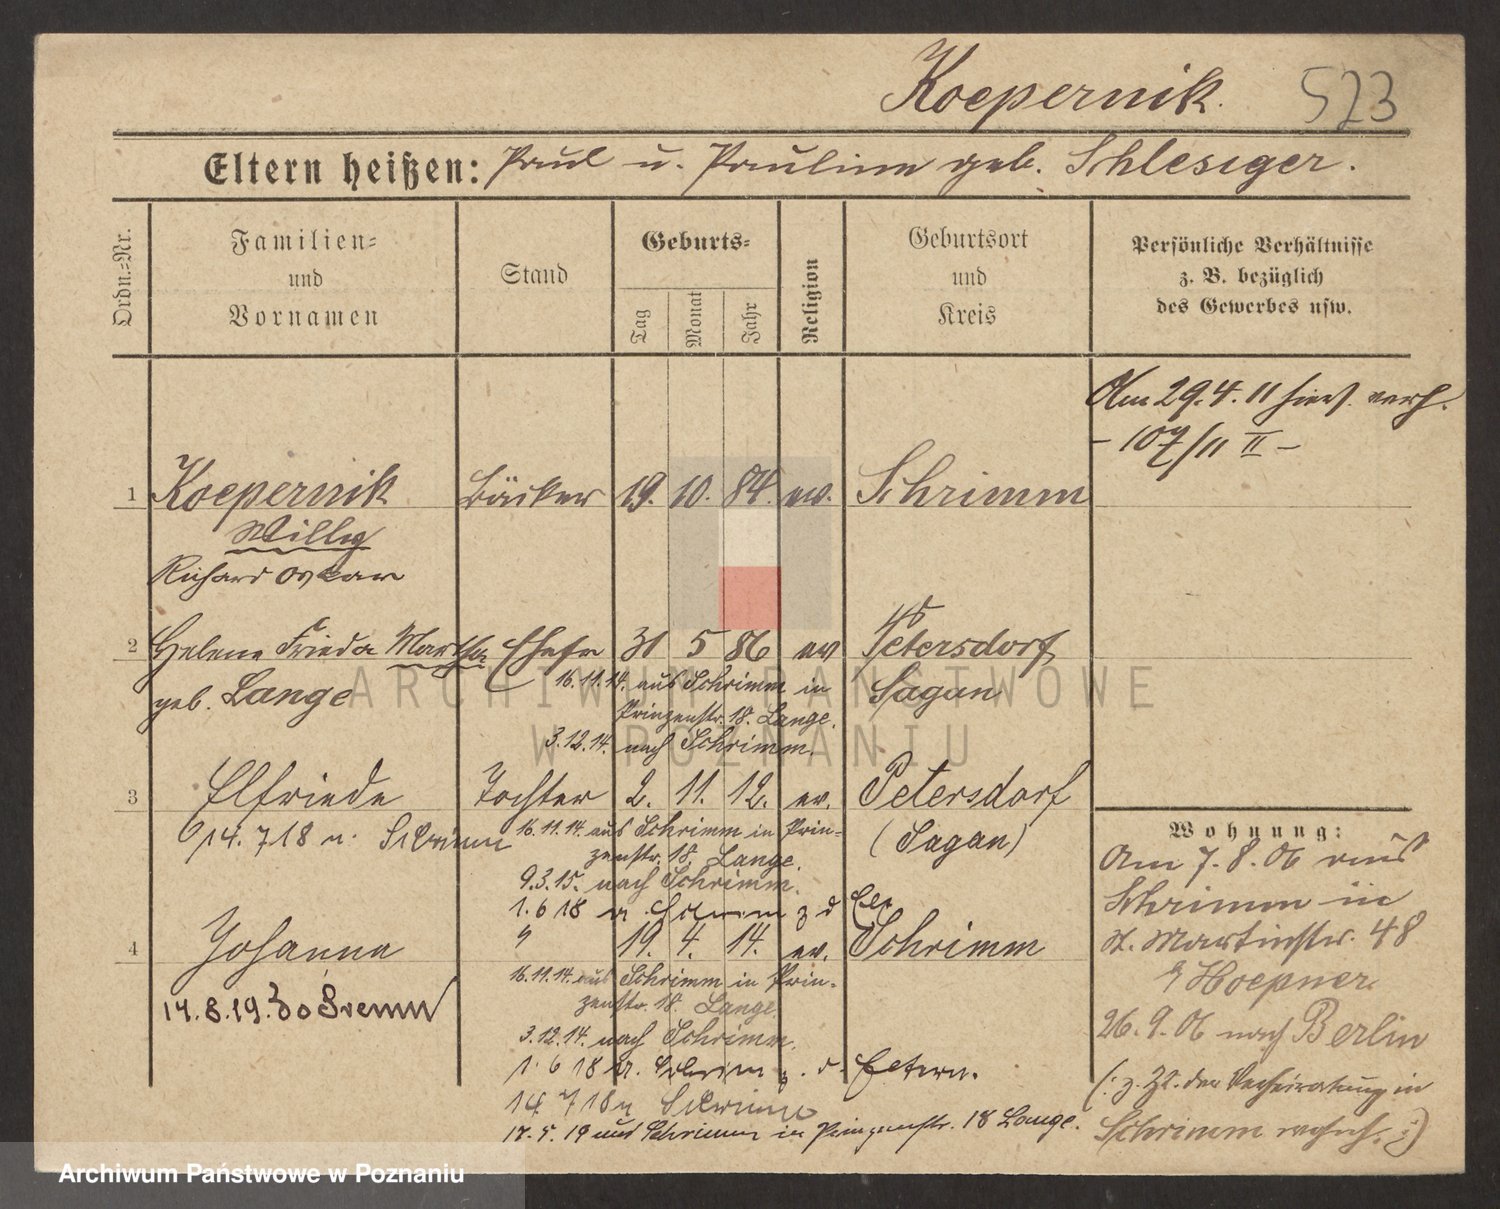 Koepernik. 523
Eltern heißen: Paul u. Pauline geb. Schlesiger.
Ordn.=Nr.
Familien=
und
Vornamen
Stand
Geburts=
Tag
Monat
Jahr
Religion
Geburtsort
und
Kreis
Persönliche Verhältnisse
z. B. bezüglich
des Gewerbes usw.
Am 29.4.11 hiers. verh.
- 107/11 II -
1 Koepernik Bäcker 19. 10. 84. ev. Schrimm
Willy
Richard Oskar
2 Helene Frieda Martha Ehefr 31 5 86 ev Petersdorf
geb. Lange Sagan
16.11.14. aus Schrimm in
Prinzenstr. 18. Lange.
3.12.14. nach Schrimm.
3 Elfriede Tochter 2. 11. 12. ev. Petersdorf
(Sagan)
14.7 18 n. Schrimm
16.11.14. aus Schrimm in Prin-
zenstr. 18. Lange.
9.3.15. nach Schrimm.
1.6 18 z d Elt
4 Johanna " 19. 4. 14. ev. Schrimm
14.8.19. do Śremu
16.11.14. aus Schrimm in Prin-
zenstr. 18. Lange.
3.12.14. nach Schrimm.
1.6 18 z. d. Eltern.
14 7 18 n Schrimm
17.5.19 aus Schrimm in Prinzenstr. 18 Lange.
Wohnung:
Am 7.8.06 aus
Schrimm in
St. Martinstr. 48
Hoepner.
26.9.06 nach Berlin
(: z. Zt. der Verheiratung in
Schrimm wohnh. :)
ARCHIWUM PAŃSTWOWE
W POZNANIU
Archiwum Państwowe w Poznaniu